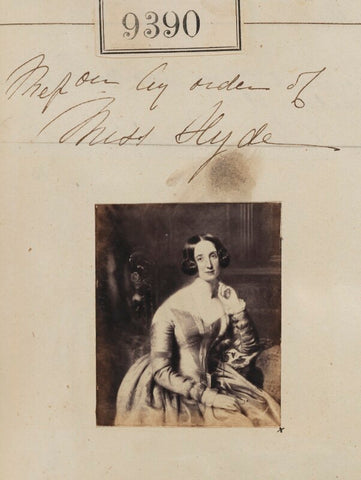 9390
by order of
Miss Hyde
x